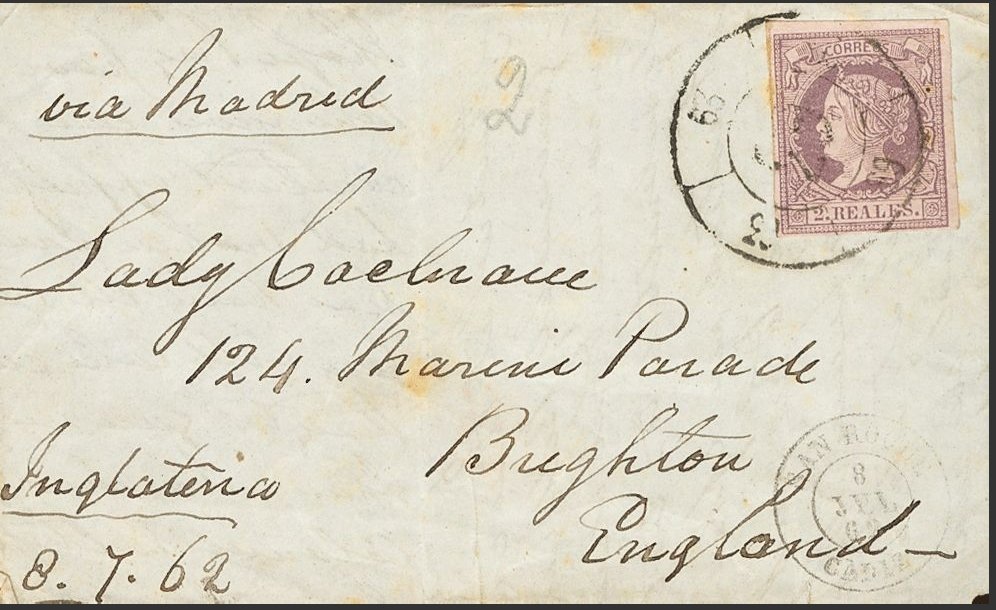 via Madrid
2
CORREOS
2. REALES.
63
Lady Cochrane
124. Marine Parade
Brighton
England
Inglaterra
8. 7. 62
SAN ROQUE
8
JUL
62
CADIZ